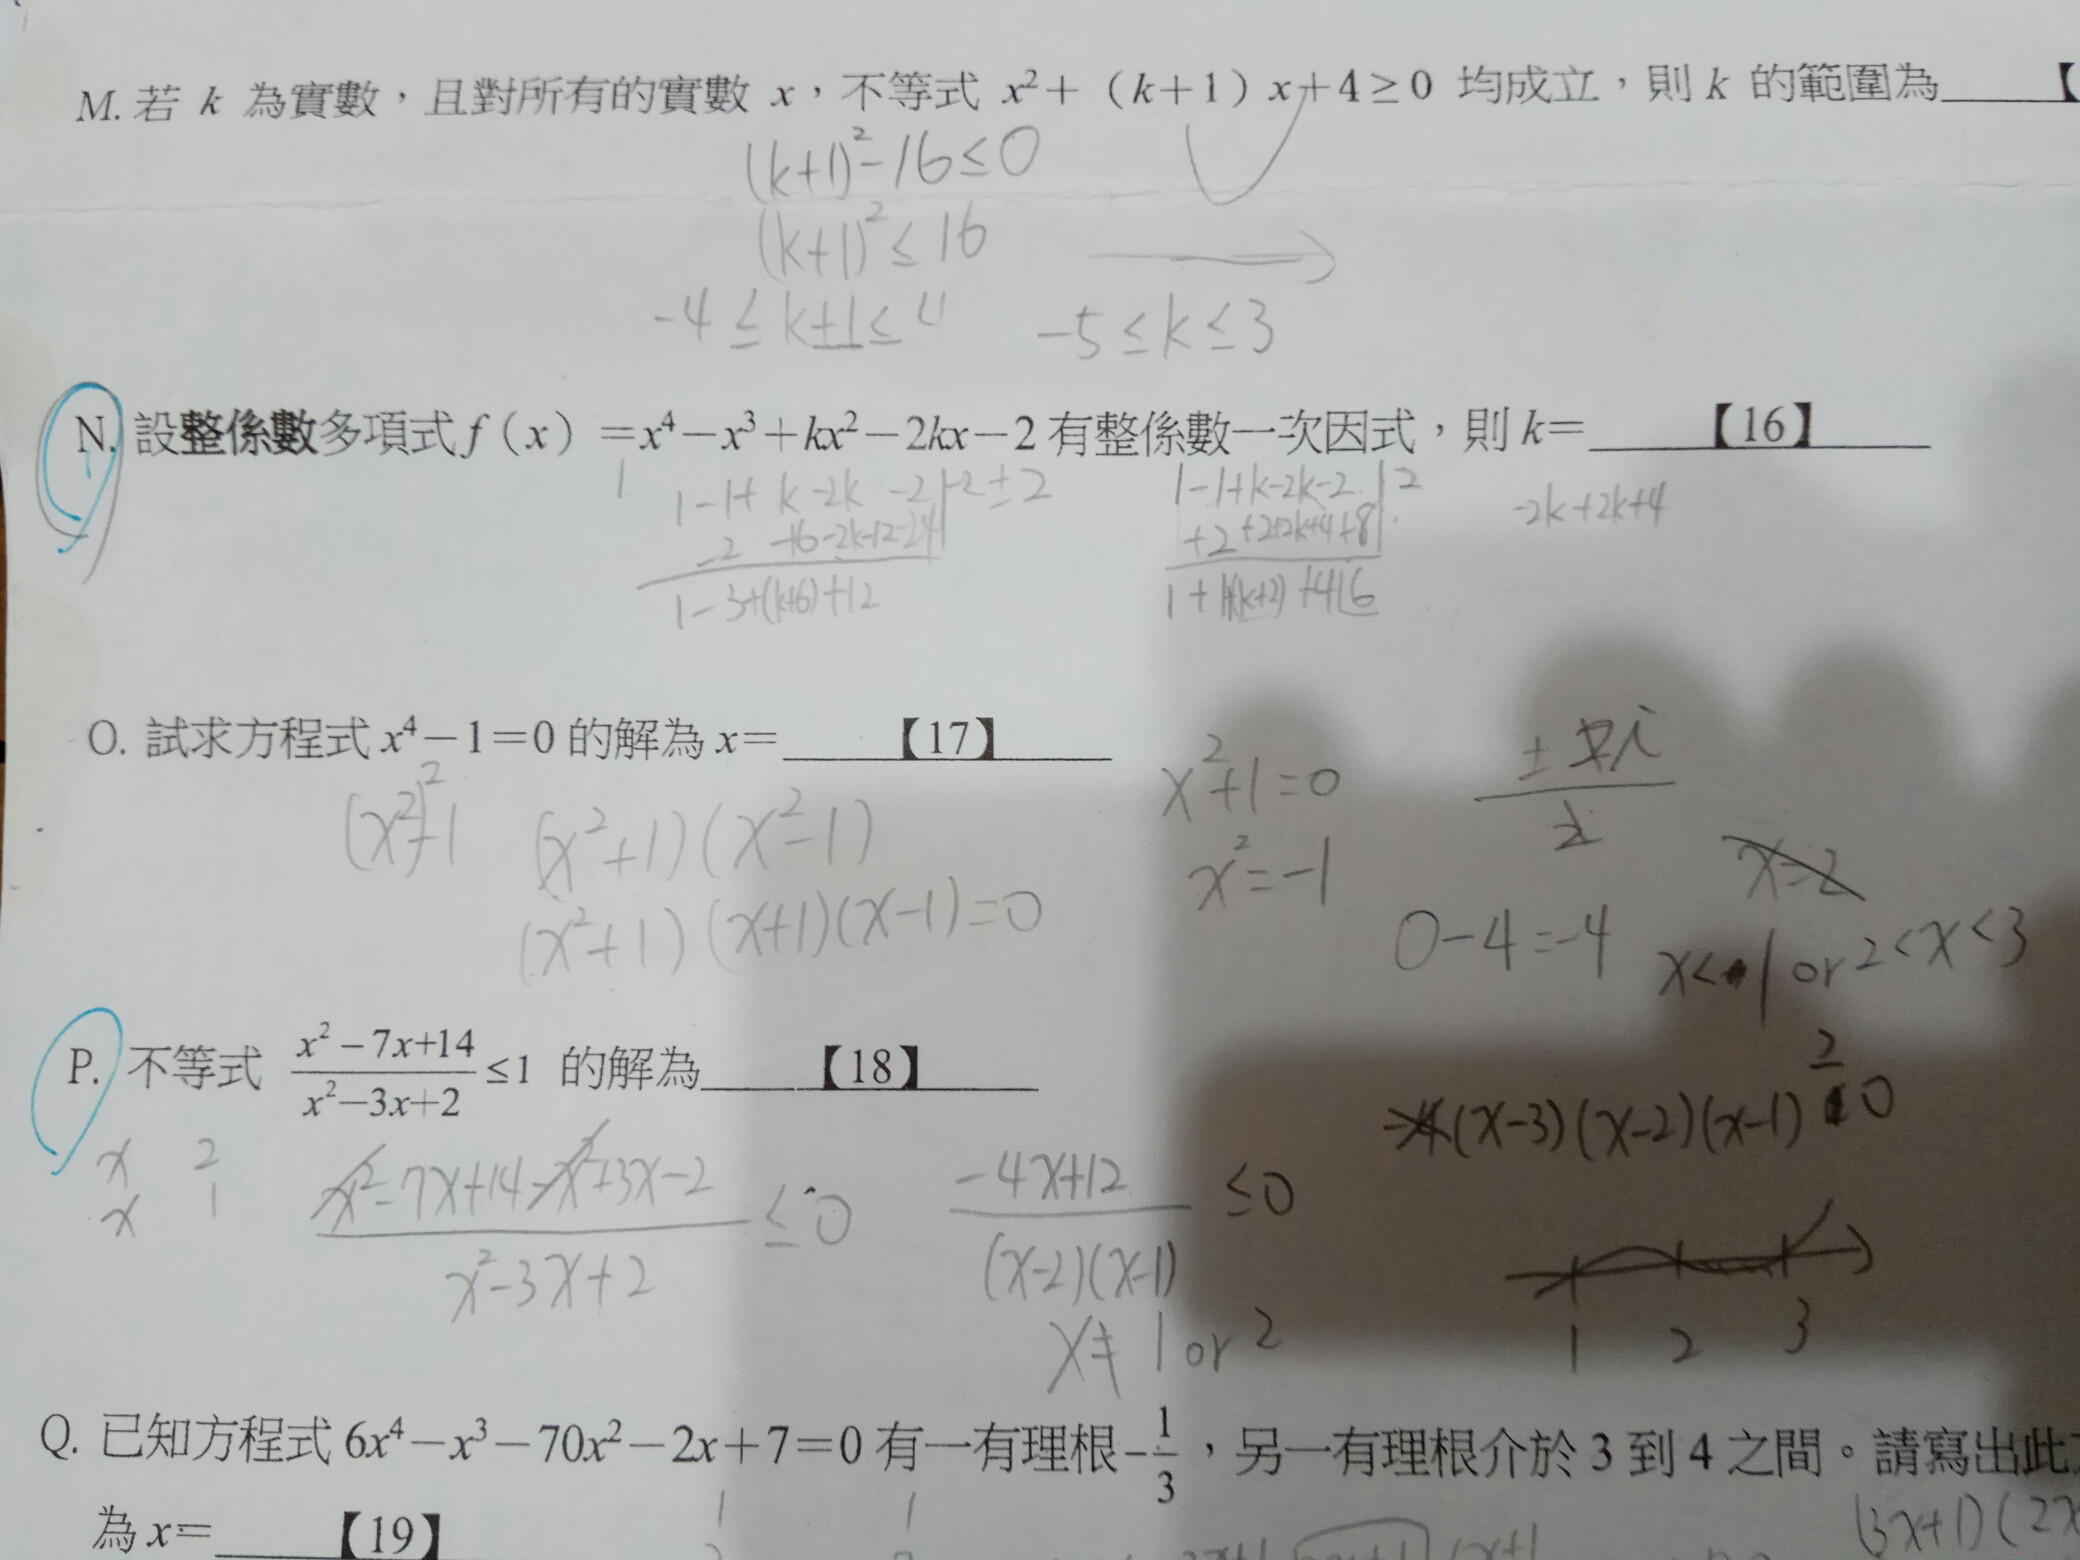 M. 若 k 為實數，且對所有的實數 x，不等式 x²+（k+1）x+4≥0 均成立，則 k 的範圍為____【
(k+1)²-16≤0
(k+1)²≤16
-4≤k+1≤4 -5≤k≤3
N. 設整係數多項式 f（x）=x⁴-x³+kx²-2kx-2 有整係數一次因式，則 k=____【16】____
1-1+k-2k-2 -2 ±2 1-1+k-2k-2 2 -2k+2k+4
1-3+(k+6)+12
O. 試求方程式 x⁴-1=0 的解為 x=____【17】____
(x²)²-1 (x²+1)(x²-1) x²+1=0
(x²+1)(x+1)(x-1)=0 x²=-1
x=2
0-4=-4 x<1 or 2<x<3
P. 不等式 (x²-7x+14)/(x²-3x+2) ≤1 的解為____【18】____
(x-3)(x-2)(x-1) 0
x 2
x 1
x²-7x+14-x²+3x-2 ≤0 -4x+12 ≤0
x²-3x+2 (x-2)(x-1)
x≠1 or 2
1 2 3
Q. 已知方程式 6x⁴-x³-70x²-2x+7=0 有一有理根-1/3，另一有理根介於 3 到 4 之間。請寫出此
為 x=____【19】
(3x+1)(2x